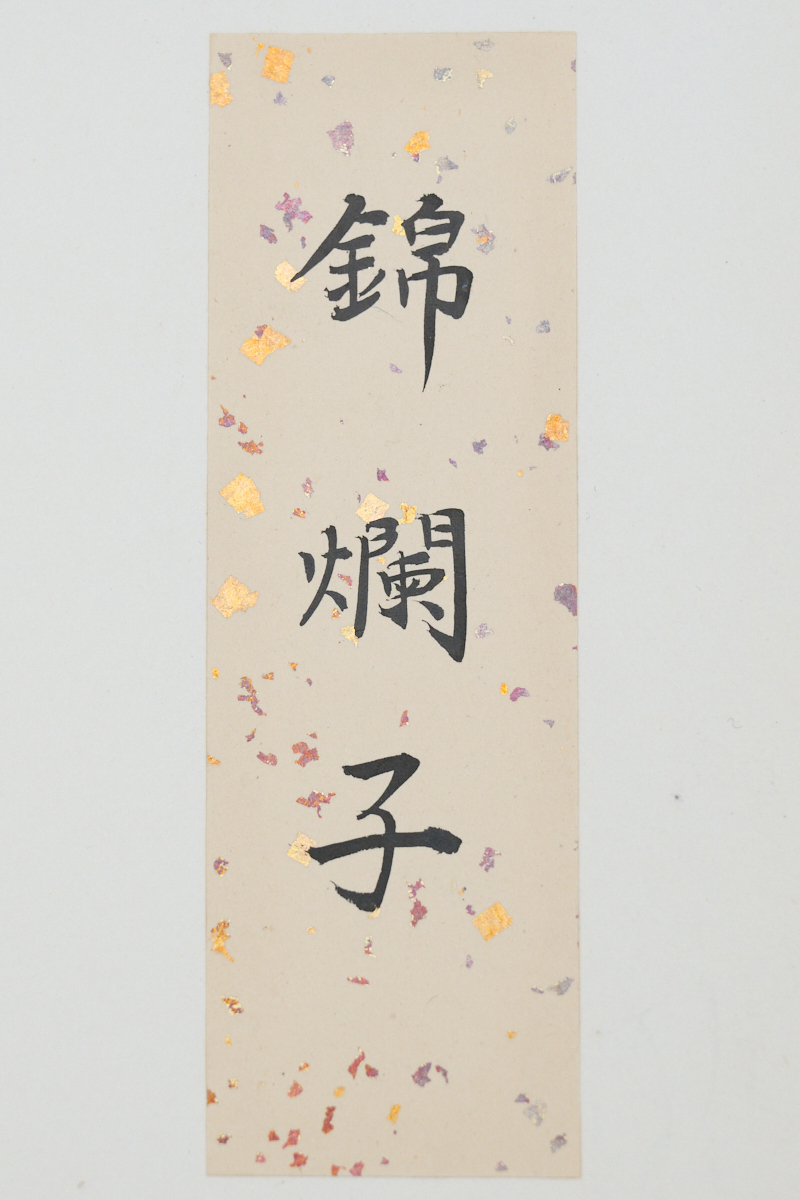 錦爛子